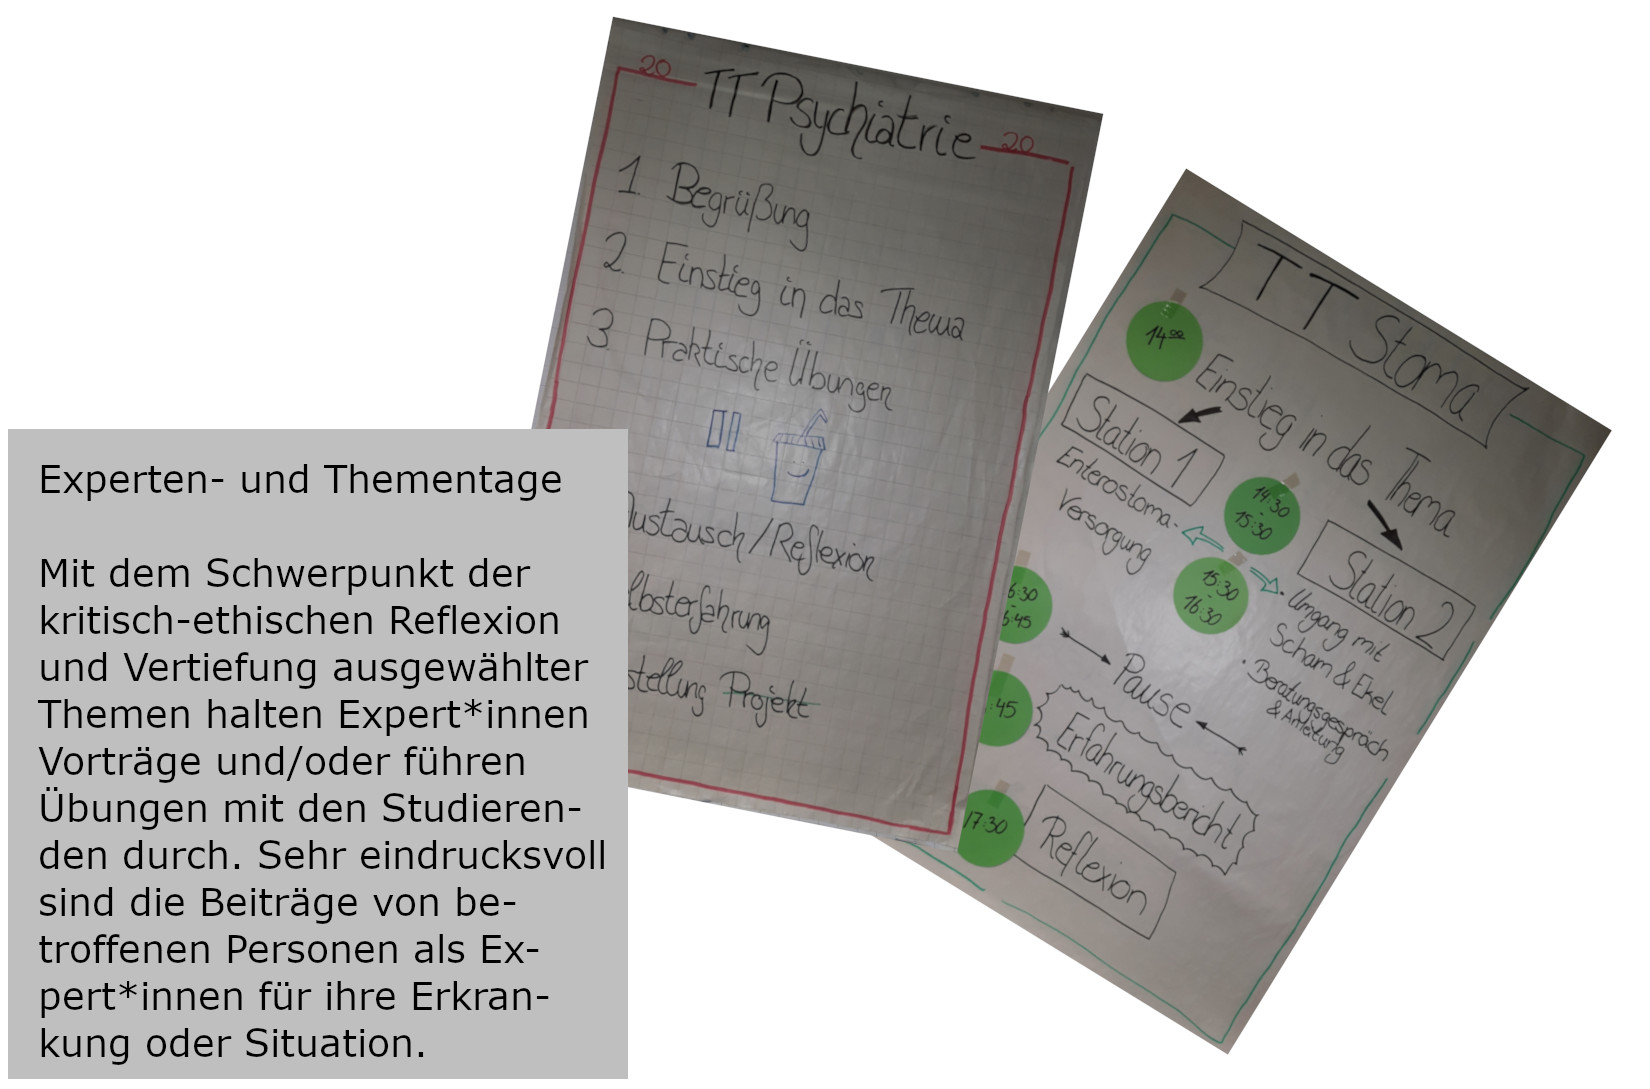 20 TT Psychiatrie 20
1. Begrüßung
2. Einstieg in das Thema
3. Praktische Übungen
Austausch/Reflexion
lbsterfahrung
stellung Projekt
TT Stoma
14⁰⁰
Einstieg in das Thema
Station 1
Enterostoma-
Versorgung
14:30
-
15:30
15:30
-
16:30
Station 2
• Umgang mit
Scham & Ekel
• Beratungsgespräch
& Anleitung
6:30
-
6:45
Pause
:45
Erfahrungsbericht
17:30
Reflexion
Experten- und Thementage
Mit dem Schwerpunkt der
kritisch-ethischen Reflexion
und Vertiefung ausgewählter
Themen halten Expert*innen
Vorträge und/oder führen
Übungen mit den Studieren-
den durch. Sehr eindrucksvoll
sind die Beiträge von be-
troffenen Personen als Ex-
pert*innen für ihre Erkran-
kung oder Situation.